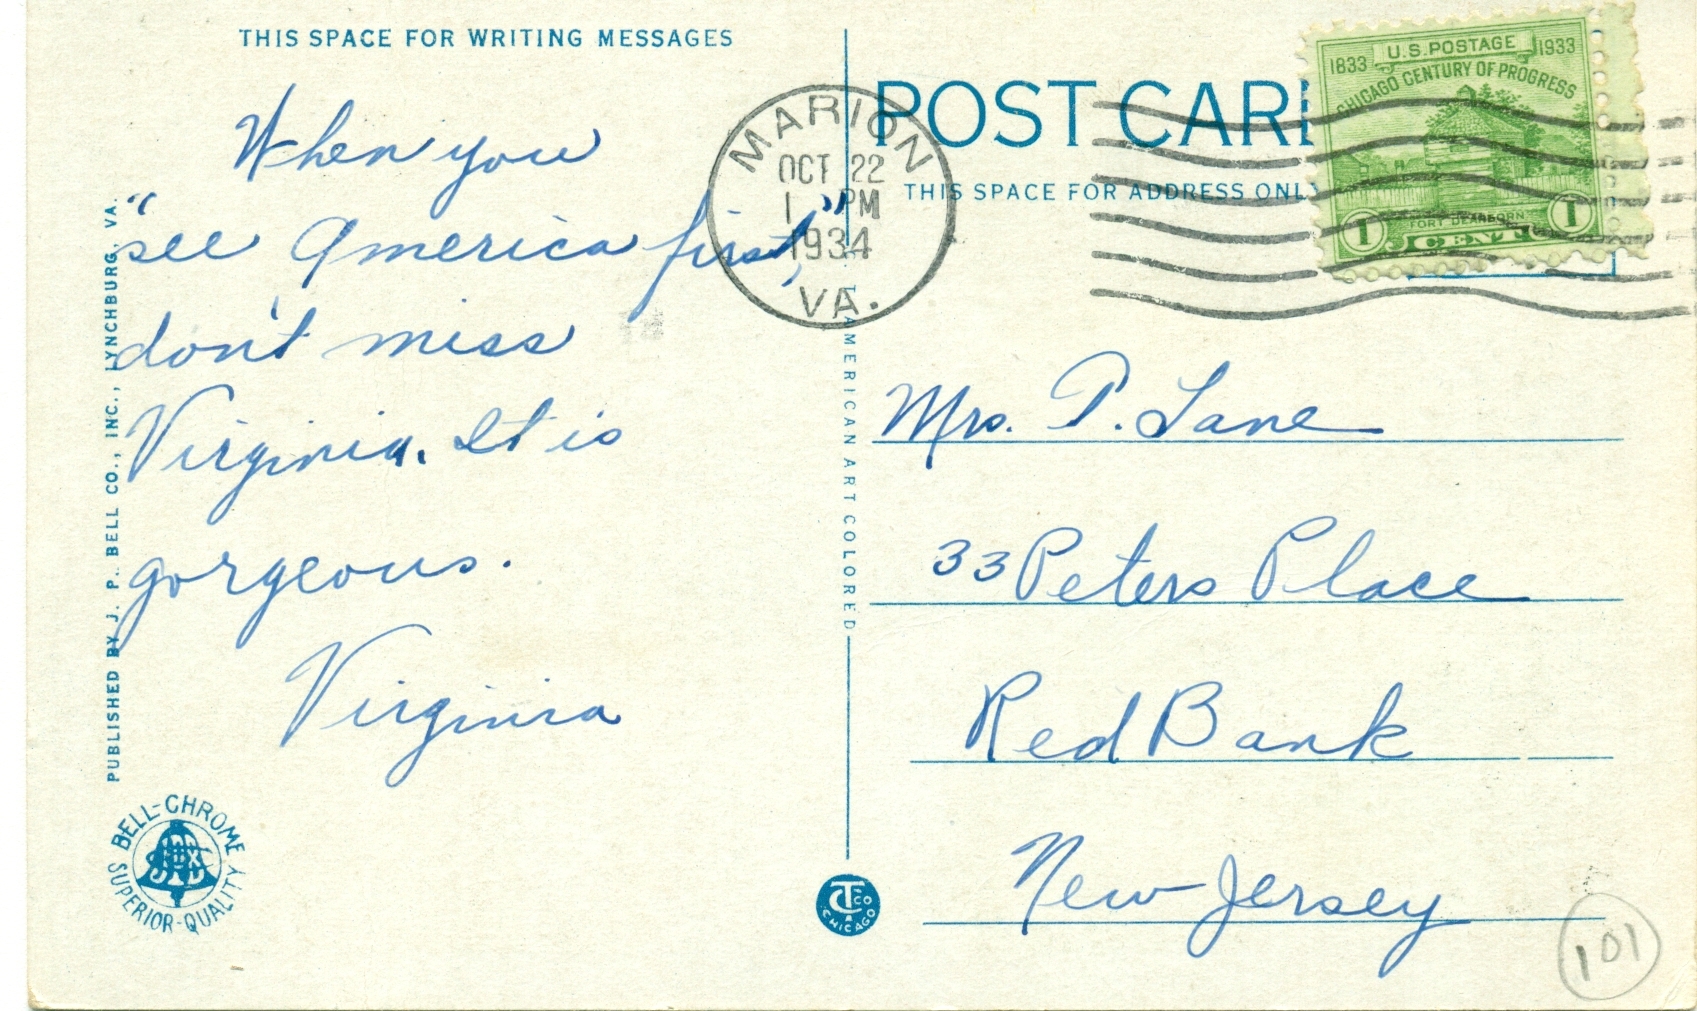 THIS SPACE FOR WRITING MESSAGES
When you
"see America first,"
don't miss
Virginia. It is
gorgeous.
Virginia
PUBLISHED BY J. P. BELL CO., INC., LYNCHBURG, VA.
BELL-CHROME
SUPERIOR-QUALITY
MARION
OCT 22
1 PM
1934
VA.
AMERICAN ART COLORED
CT CO
CHICAGO
POST CAR
THIS SPACE FOR ADDRESS ONLY
1833 U.S. POSTAGE 1933
CHICAGO CENTURY OF PROGRESS
FORT DEARBORN
1 CENT 1
Mrs. P. Lane
33 Peters Place
Red Bank
New Jersey
101